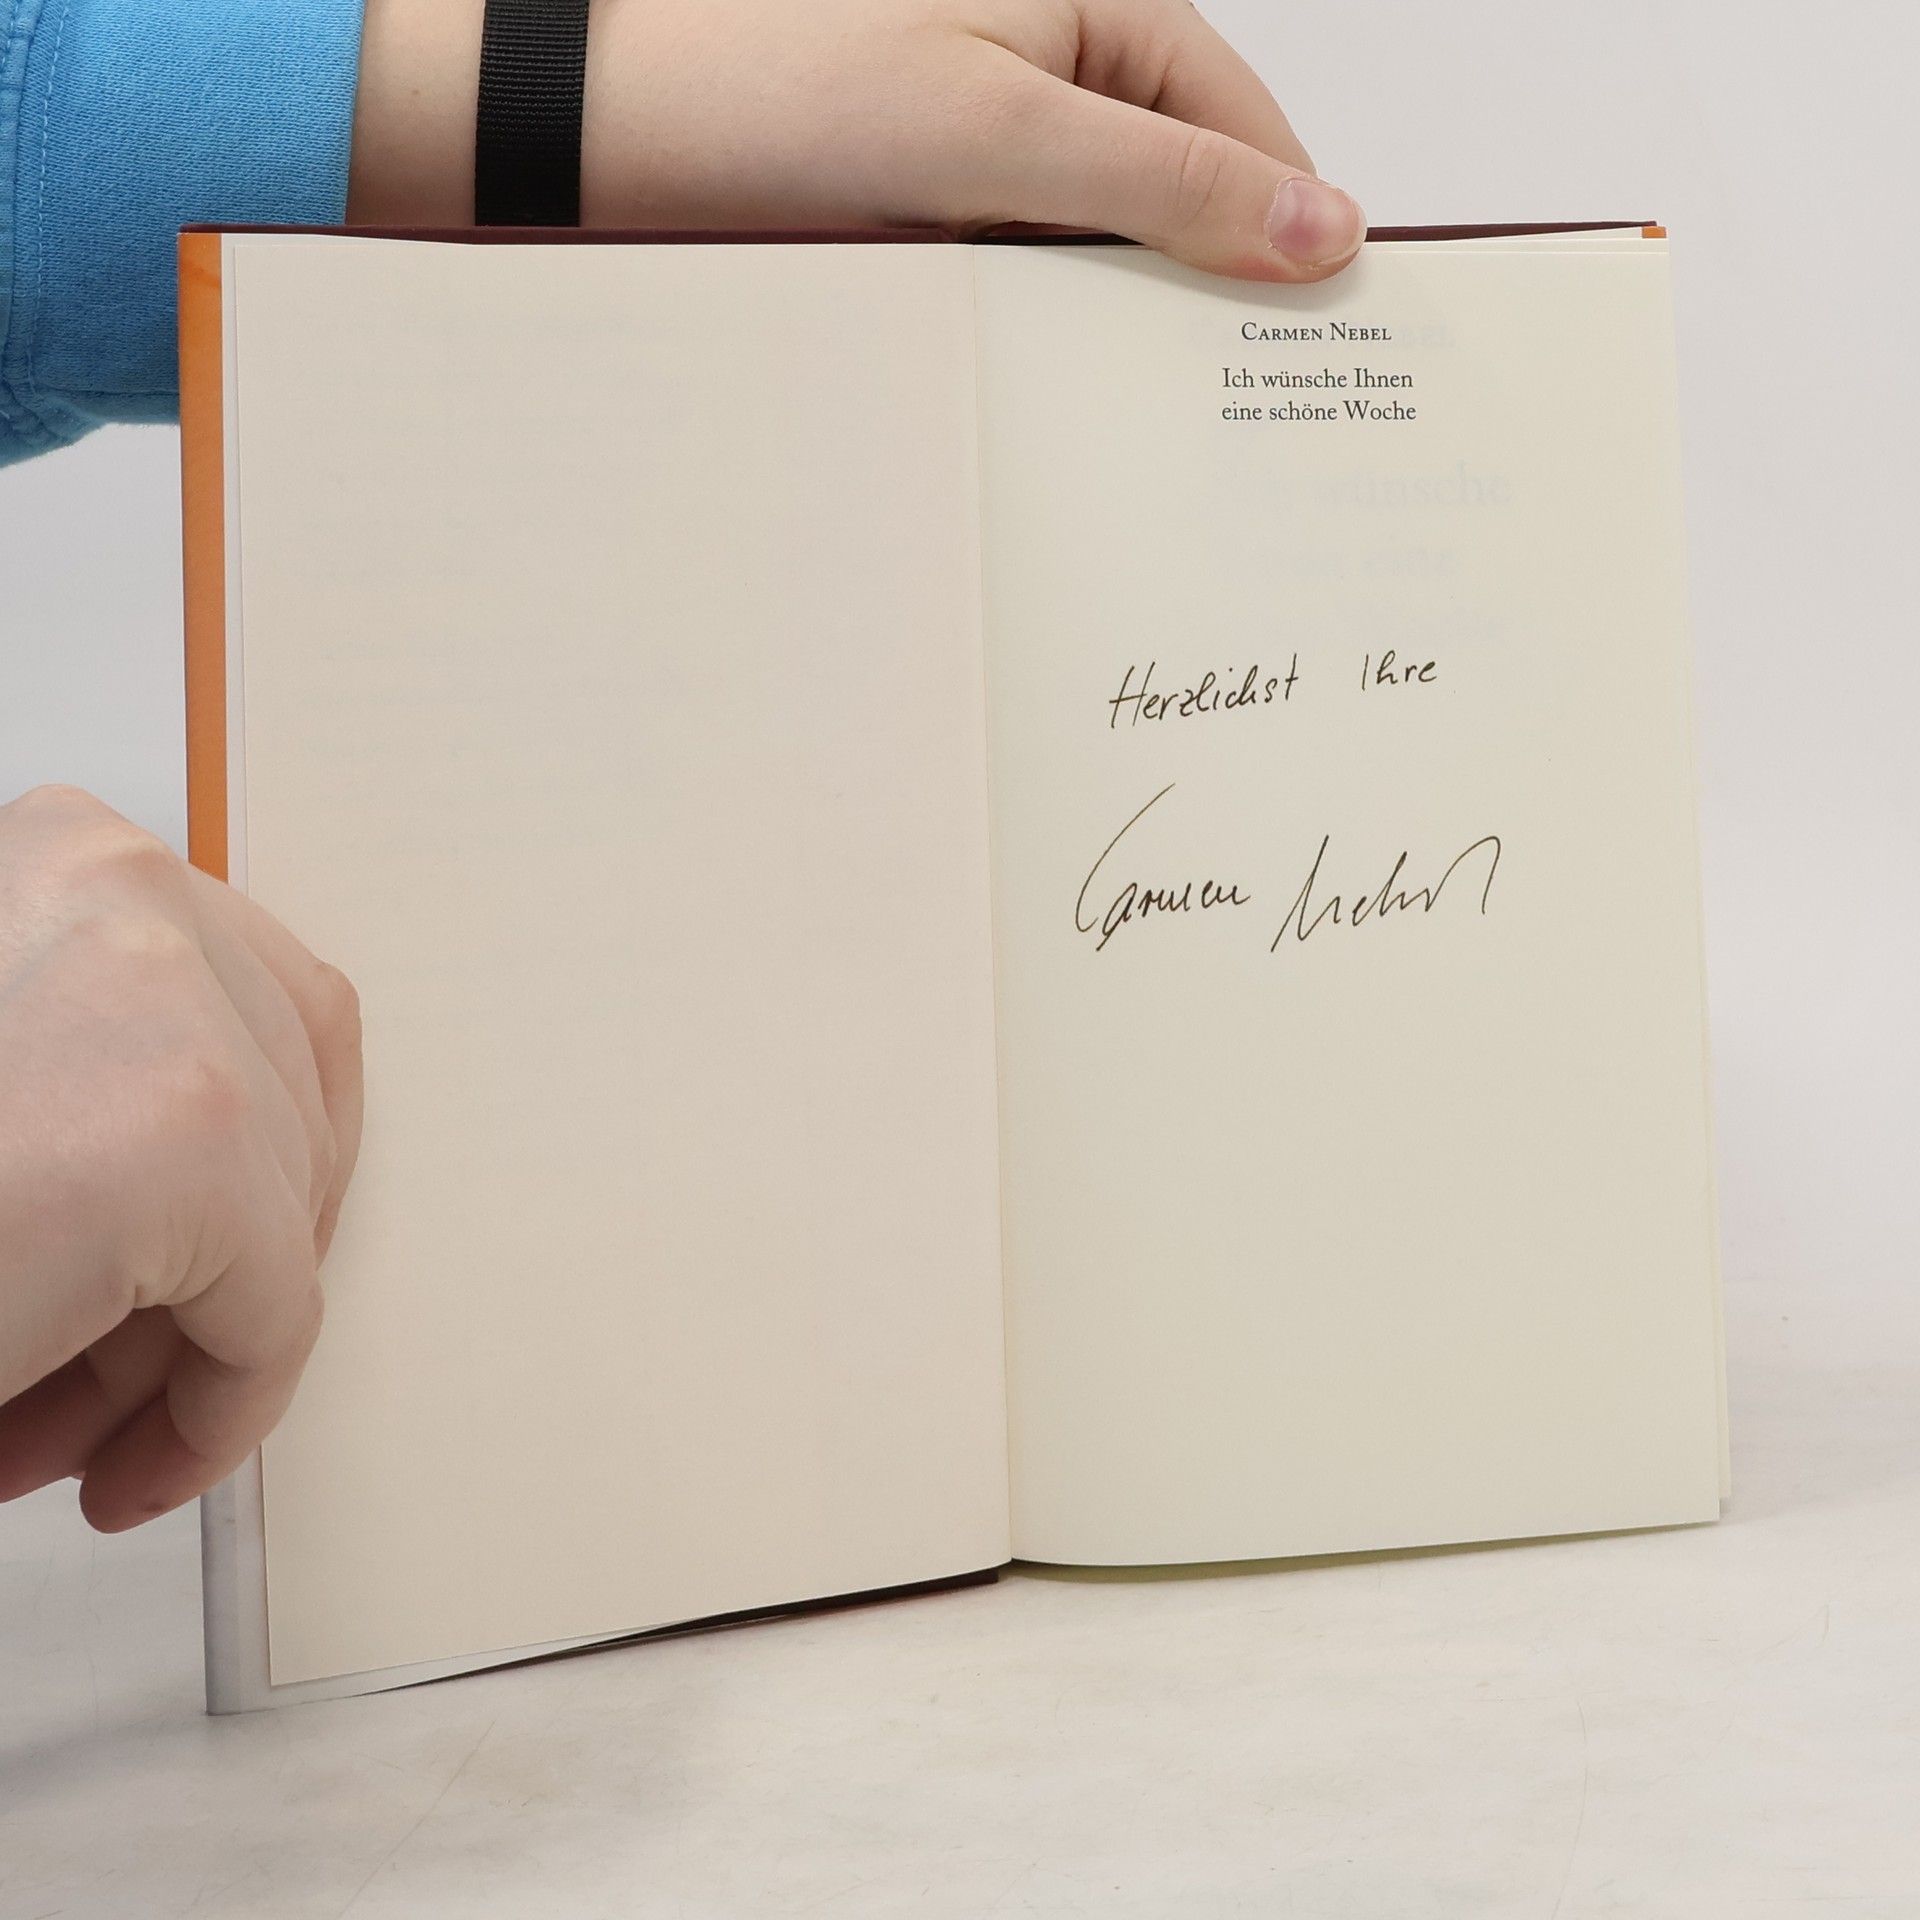 CARMEN NEBEL
Ich wünsche Ihnen
eine schöne Woche
wünsche
eine
Herzlichst Ihre
Carmen Nebel